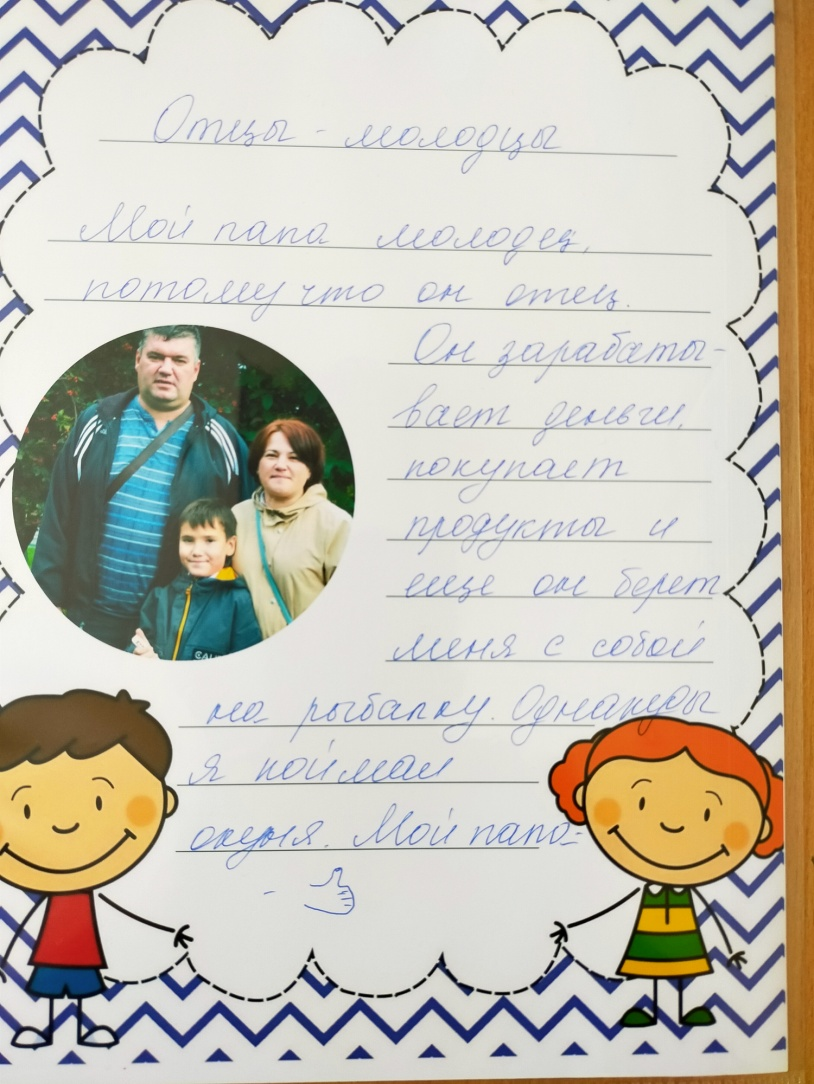 Отцы - молодцы
Мой папа молодец,
потому что он отец.
Он зарабаты-
вает деньги,
покупает
продукты и
еще он берет
меня с собой
на рыбалку. Однажды
я поймал
окуня. Мой папа-
-